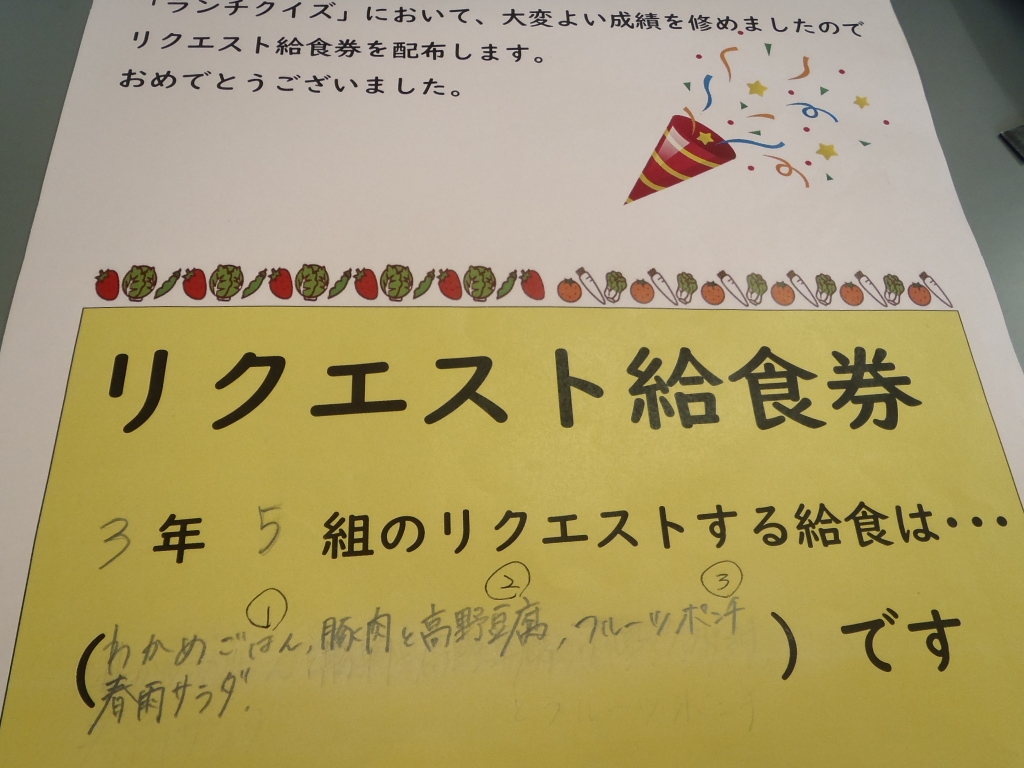 「ランチクイズ」において、大変よい成績を修めましたので
リクエスト給食券を配布します。
おめでとうございました。
リクエスト給食券
3年 5 組のリクエストする給食は・・・
① ② ③
(わかめごはん、豚肉と高野豆腐、フルーツポンチ
春雨サラダ.)です